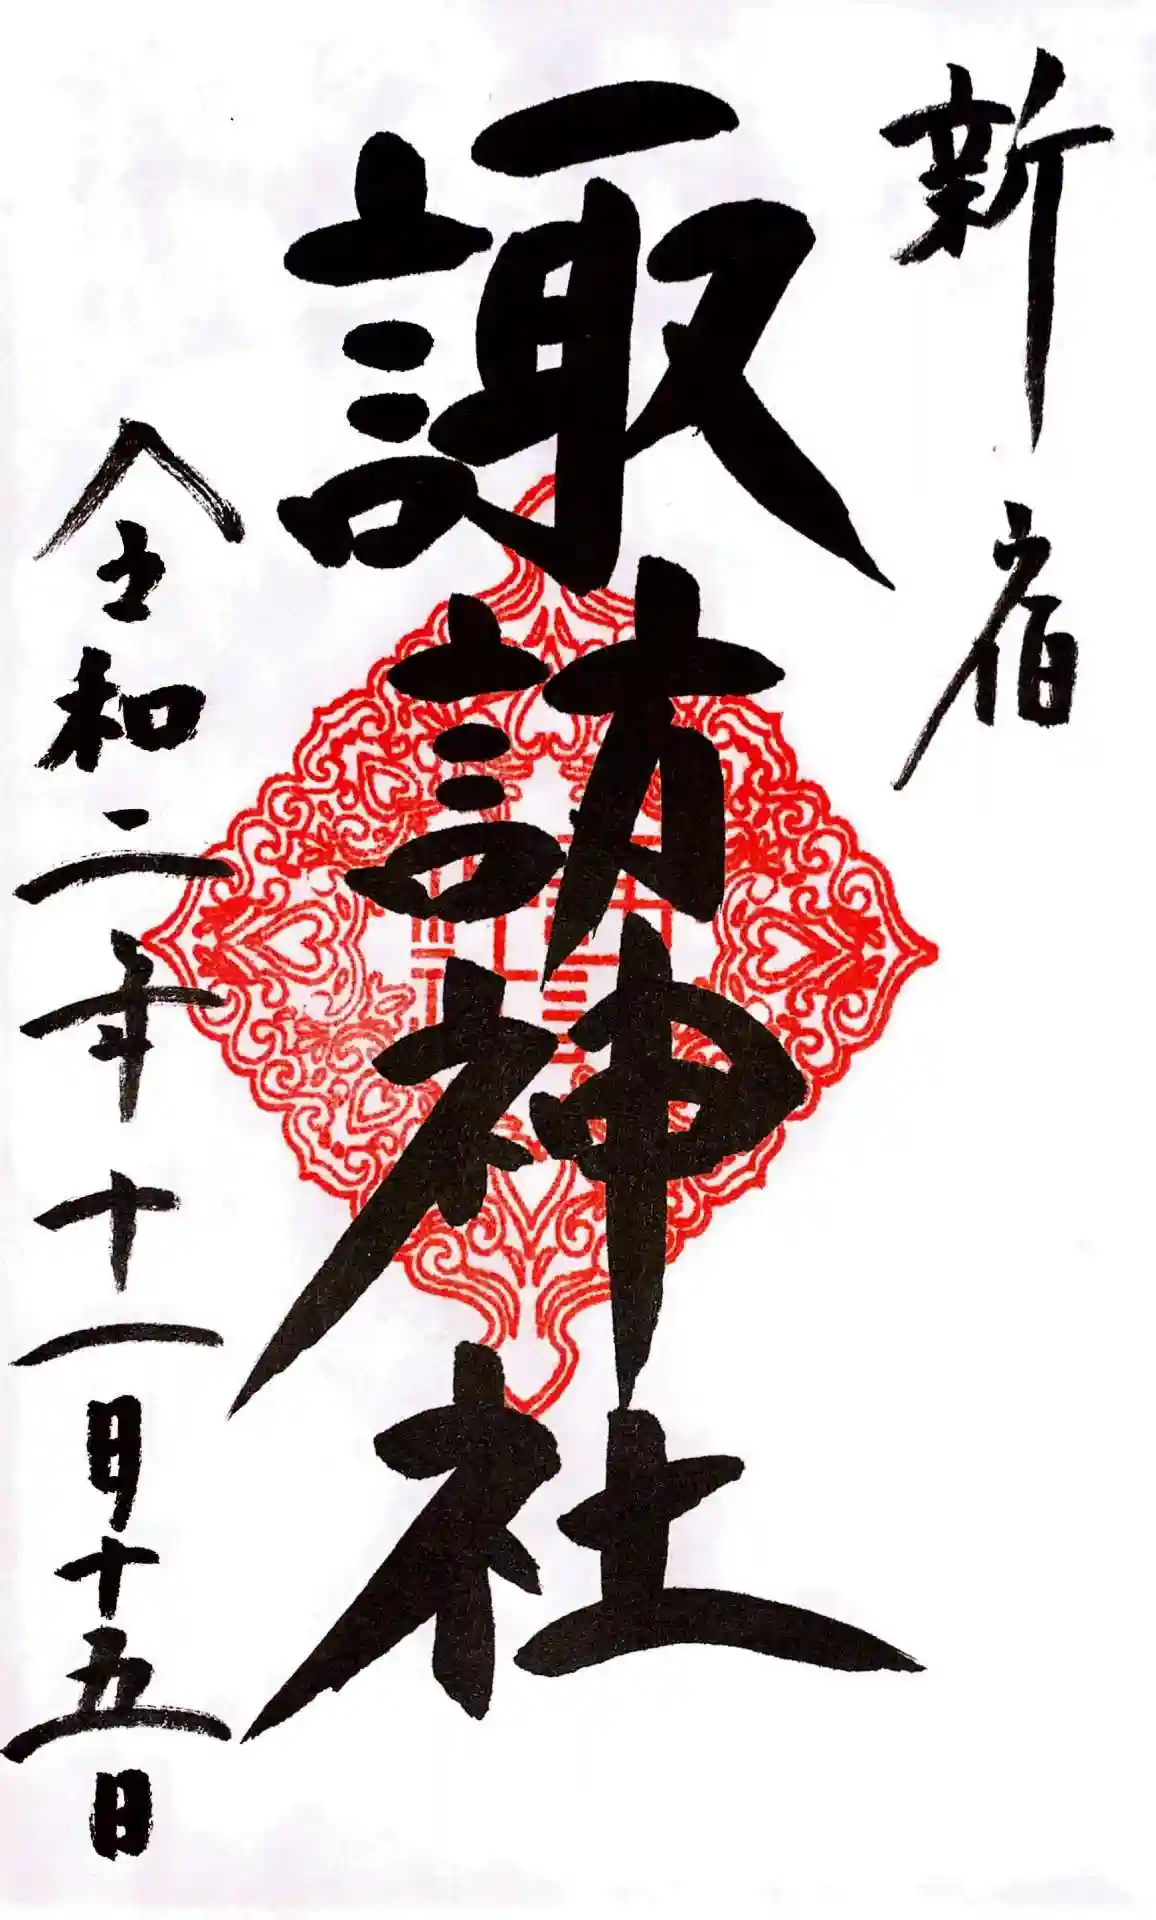 新宿
諏訪神社
令和二年十一月十五日